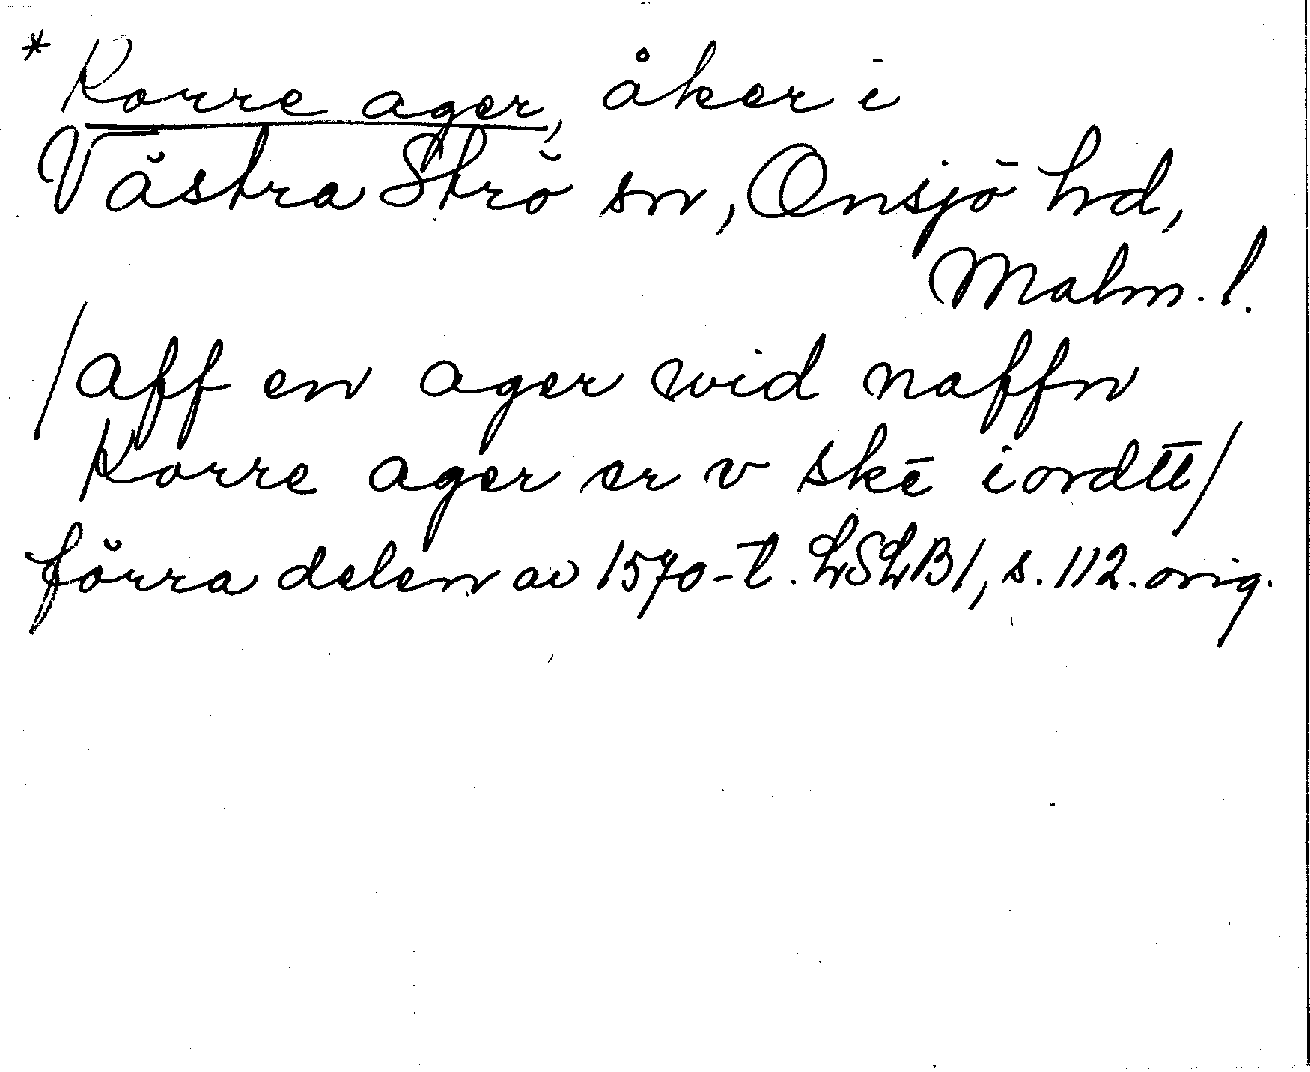 * Korre ager, åker i
Västra Strö sn, Onsjö hd,
Malm. l.
/Aff en ager wid naffn
Korre ager er v skē iordtt/
förra delen av 1570-t. LSLB1, s. 112. orig.